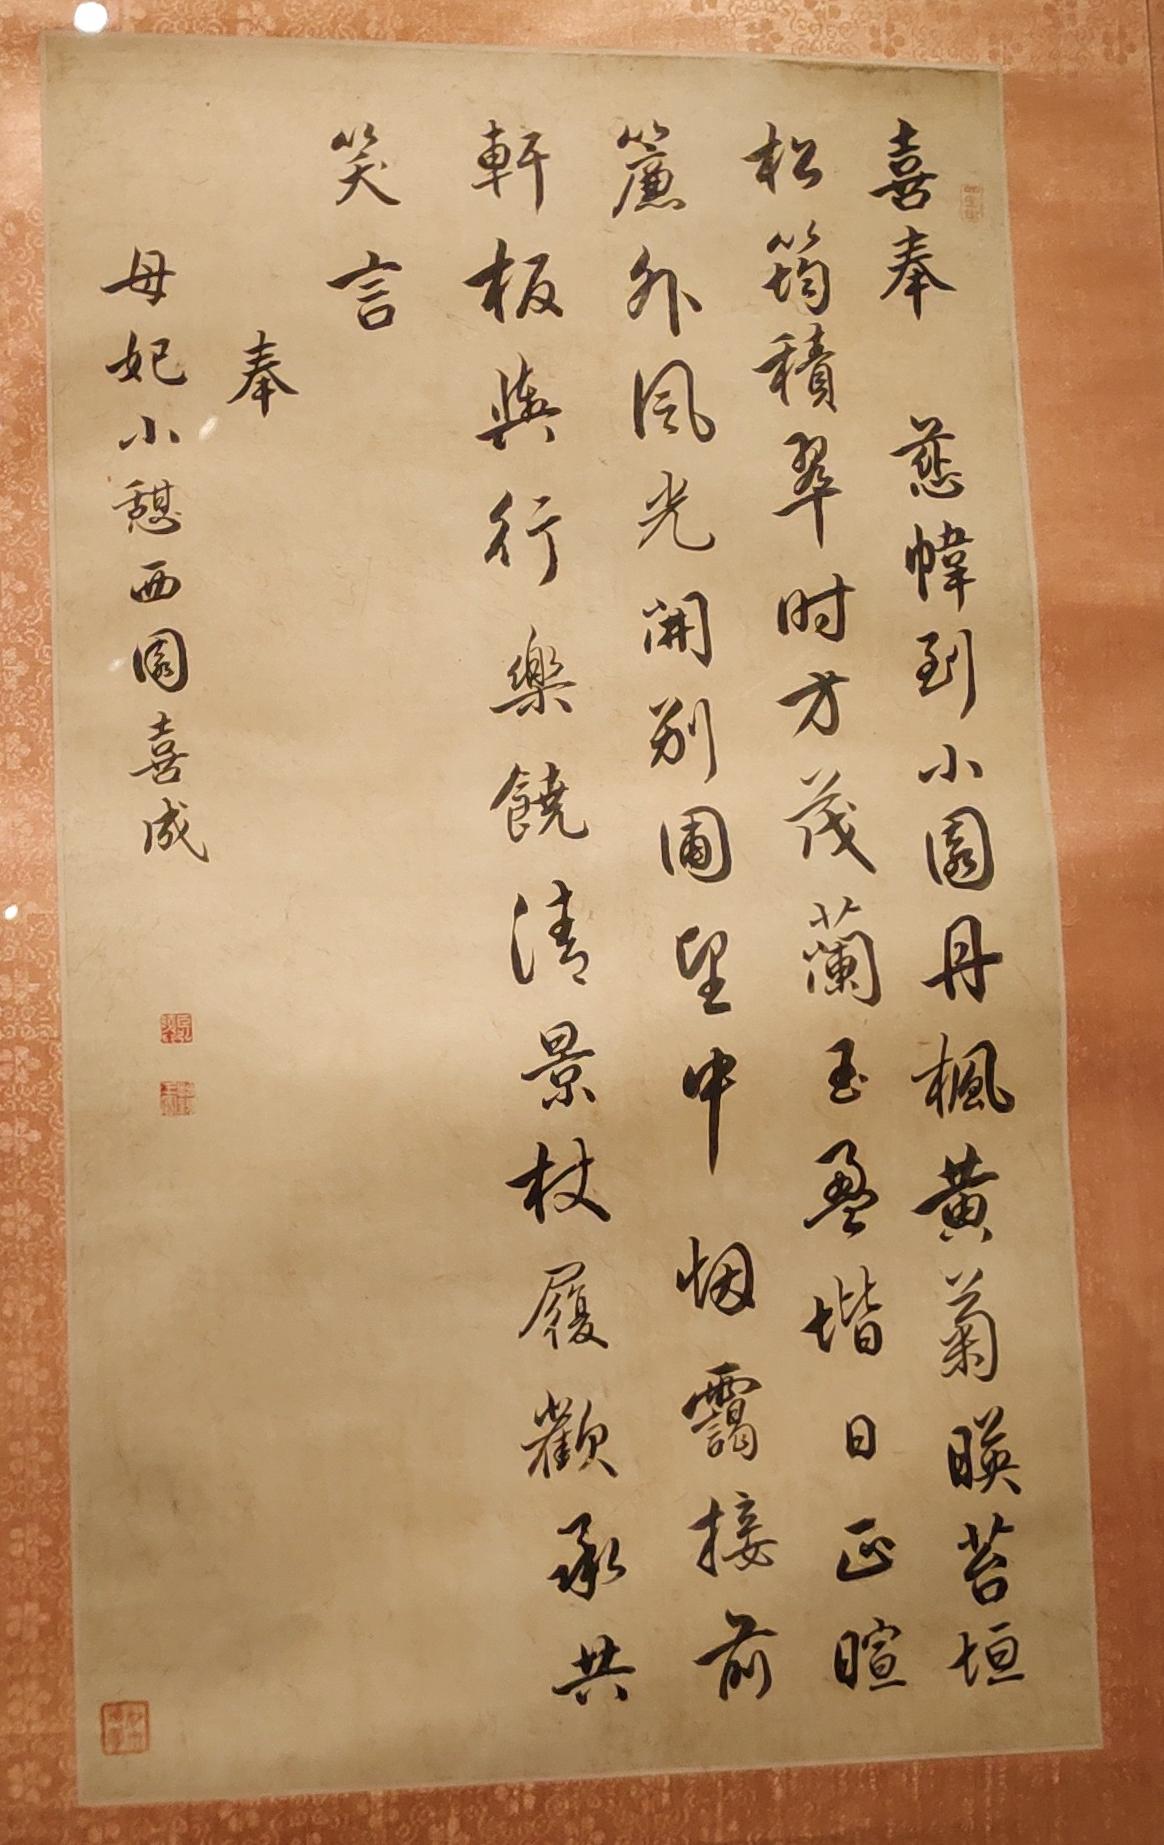 喜奉 慈幃到小園丹楓黃菊暎苔垣
松筠積翠時方茂蘭玉盈堦日正暄
簾外風光開別圃望中烟靄接前
軒板輿行樂饒清景杖履歡承共
笑言
奉
母妃小憩西園喜成